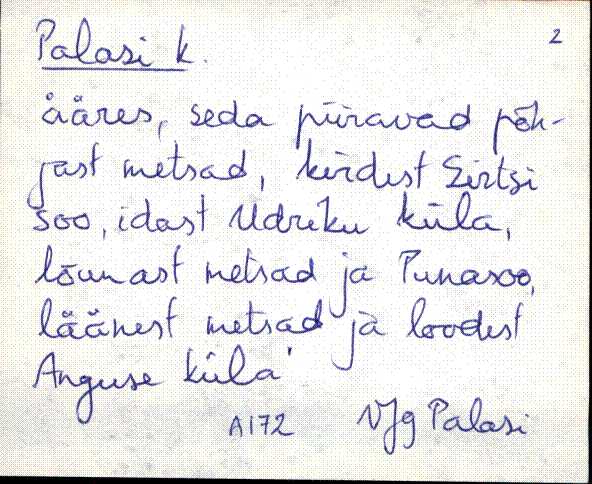 Palasi k.
2
ääres, seda piiravad põh-
jast metsad, kirdest Sirtsi
soo, idast Udriku küla,
lõunast metsad ja Punasoo,
läänest metsad ja loodest
Anguse küla
A172 VJg Palasi